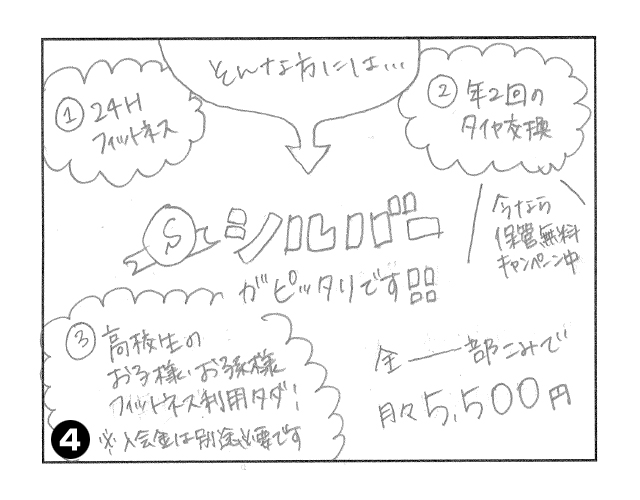 そんな方には…
① 24H
フィットネス
② 年2回の
タイヤ交換
S シルバー
がピッタリです!!
今なら
保管無料
キャンペーン中
③ 高校生の
お子様・お孫様
フィットネス利用タダ!
※入会金は別途必要です
全――部こみで
月々5,500円
4